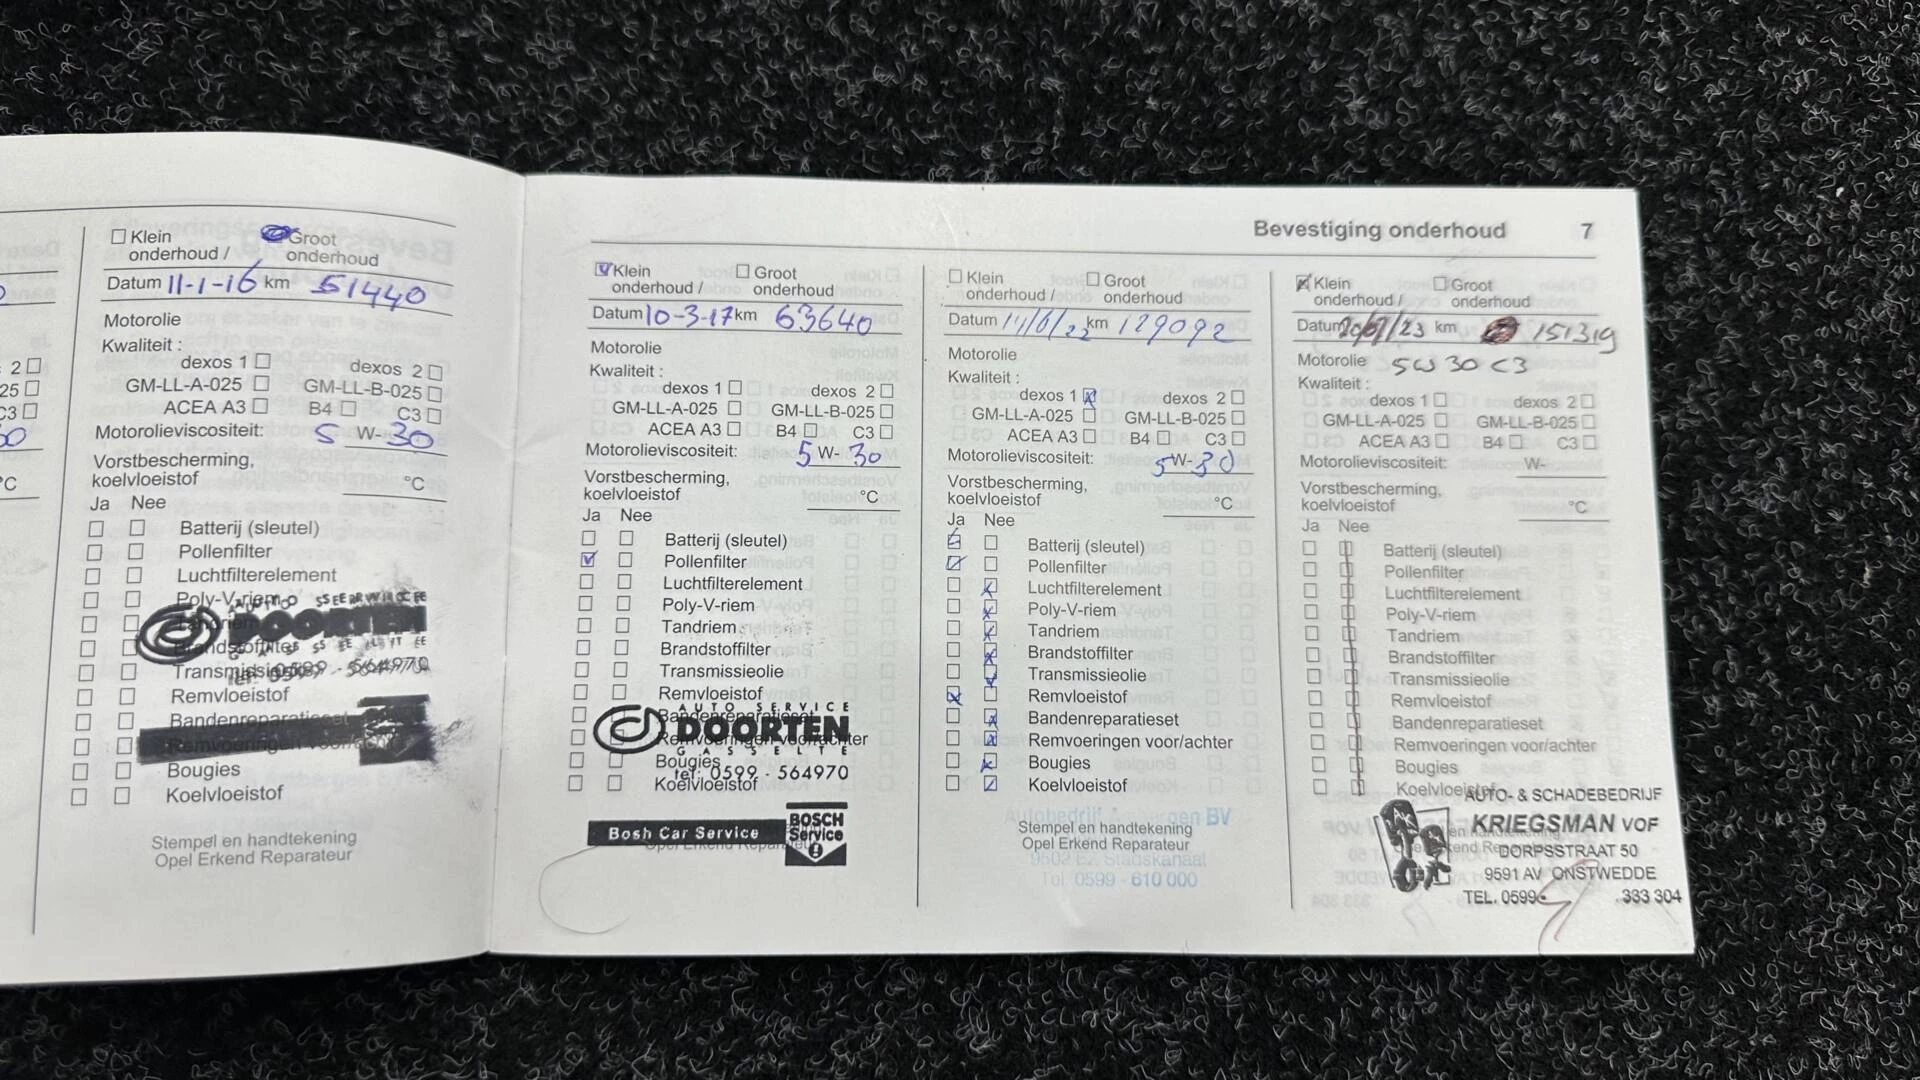 Bevestiging onderhoud 7
Klein onderhoud / Groot onderhoud
Datum 11-1-16 km 51440
Motorolie
Kwaliteit :
dexos 1 dexos 2
GM-LL-A-025 GM-LL-B-025
ACEA A3 B4 C3
Motorolieviscositeit: 5 W- 30
Vorstbescherming,
koelvloeistof °C
Ja Nee
Batterij (sleutel)
Pollenfilter
Luchtfilterelement
Poly-V-riem
Brandstoffilter
Transmissieolie
Remvloeistof
Bandenreparatieset
Remvoeringen voor/achter
Bougies
Koelvloeistof
DOORTEN
0599 - 564970
Stempel en handtekening
Opel Erkend Reparateur
Klein onderhoud / Groot onderhoud
Datum 10-3-17 km 63640
Motorolie
Kwaliteit :
dexos 1 dexos 2
GM-LL-A-025 GM-LL-B-025
ACEA A3 B4 C3
Motorolieviscositeit: 5 W- 30
Vorstbescherming,
koelvloeistof °C
Ja Nee
Batterij (sleutel)
Pollenfilter
Luchtfilterelement
Poly-V-riem
Tandriem
Brandstoffilter
Transmissieolie
Remvloeistof
Bandenreparatieset
Remvoeringen voor/achter
Bougies
Koelvloeistof
AUTO SERVICE
DOORTEN
GASSELTE
tel: 0599 - 564970
Bosh Car Service
BOSCH
Service
Opel Erkend Reparateur
Klein onderhoud / Groot onderhoud
Datum 14/6/22 km 129092
Motorolie
Kwaliteit :
dexos 1 dexos 2
GM-LL-A-025 GM-LL-B-025
ACEA A3 B4 C3
Motorolieviscositeit: 5 W- 30
Vorstbescherming,
koelvloeistof °C
Ja Nee
Batterij (sleutel)
Pollenfilter
Luchtfilterelement
Poly-V-riem
Tandriem
Brandstoffilter
Transmissieolie
Remvloeistof
Bandenreparatieset
Remvoeringen voor/achter
Bougies
Koelvloeistof
Autobedrijf BV
Stempel en handtekening
Opel Erkend Reparateur
9502 EZ Stadskanaal
Tel. 0599 - 610 000
Klein onderhoud / Groot onderhoud
Datum /23 km 151319
Motorolie 5W30 C3
Kwaliteit :
dexos 1 dexos 2
GM-LL-A-025 GM-LL-B-025
ACEA A3 B4 C3
Motorolieviscositeit: W-
Vorstbescherming,
koelvloeistof °C
Ja Nee
Batterij (sleutel)
Pollenfilter
Luchtfilterelement
Poly-V-riem
Tandriem
Brandstoffilter
Transmissieolie
Remvloeistof
Bandenreparatieset
Remvoeringen voor/achter
Bougies
Koelvloeistof
AUTO- & SCHADEBEDRIJF
KRIEGSMAN VOF
DORPSSTRAAT 50
9591 AV ONSTWEDDE
TEL. 0599- 333 304